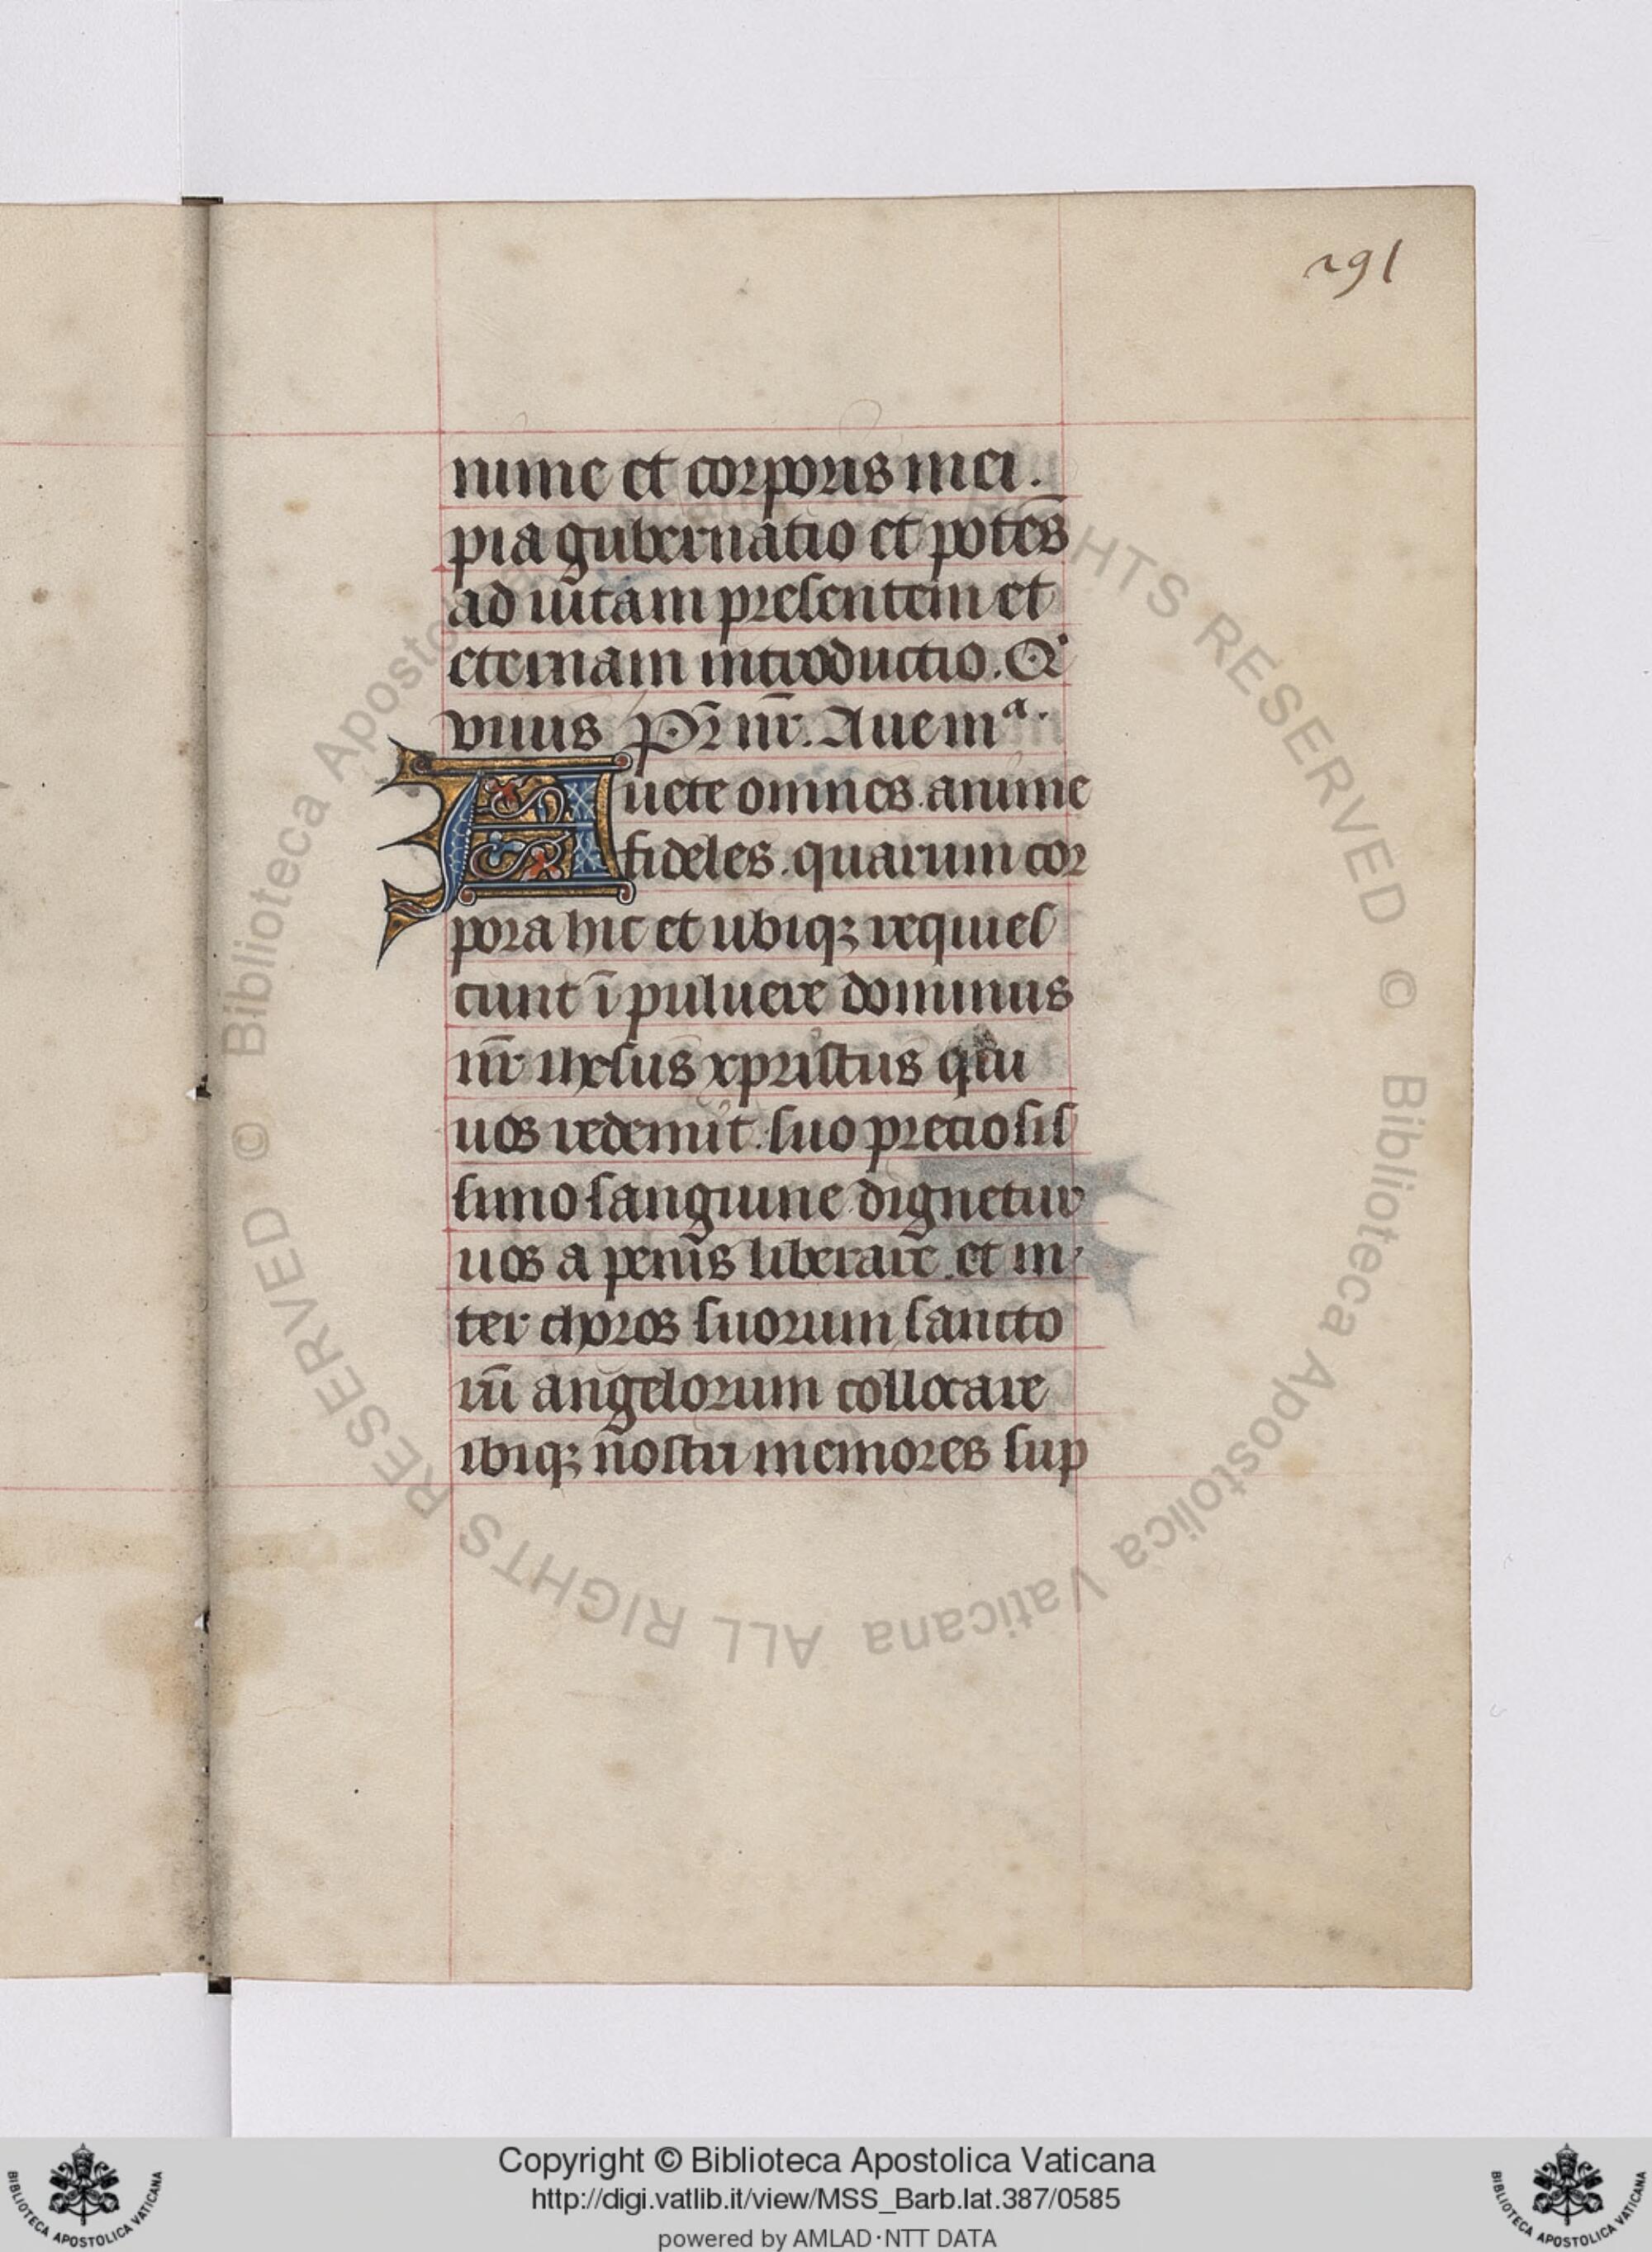 291
nime et corporis mei.
pia gubernatio et potēs
ad uitam presentem et
eternam introductio. Qͥ
viuis Pr̄ nr̄. Aue mᵃ.
Auete omnes anime
fideles. quarum cor
pora hic et ubiqꝫ requies
cunt ī puluere dominus
nr̄ ihesus xpristus qui
uos redemit. suo preciosis
simo sanguine dignetur
uos a penis liberare. et in
ter choros suorum sancto
rū angelorum collocare
ibiqꝫ nostri memores sup
© Biblioteca Apostolica Vaticana ALL RIGHTS RESERVED © Biblioteca Apostolica Vaticana ALL RIGHTS RESERVED
Copyright © Biblioteca Apostolica Vaticana
http://digi.vatlib.it/view/MSS_Barb.lat.387/0585
powered by AMLAD·NTT DATA
BIBLIOTECA APOSTOLICA VATICANA
BIBLIOTECA APOSTOLICA VATICANA